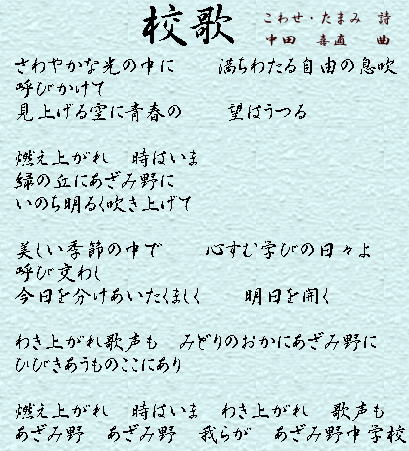 校歌
こわせ・たまみ　詩
中田　喜直　曲
さわやかな光の中に　満ちわたる自由の息吹
呼びかけて
見上げる空に青春の　望はうつる
燃え上がれ　時はいま
緑の丘にあざみ野に
いのち明るく吹き上げて
美しい季節の中で　心すむ学びの日々よ
呼び交わし
今日を分けあいたくましく　明日を開く
わき上がれ歌声も　みどりのおかにあざみ野に
ひびきあうものここにあり
燃え上がれ　時はいま　わき上がれ　歌声も
あざみ野　あざみ野　我らが　あざみ野中学校